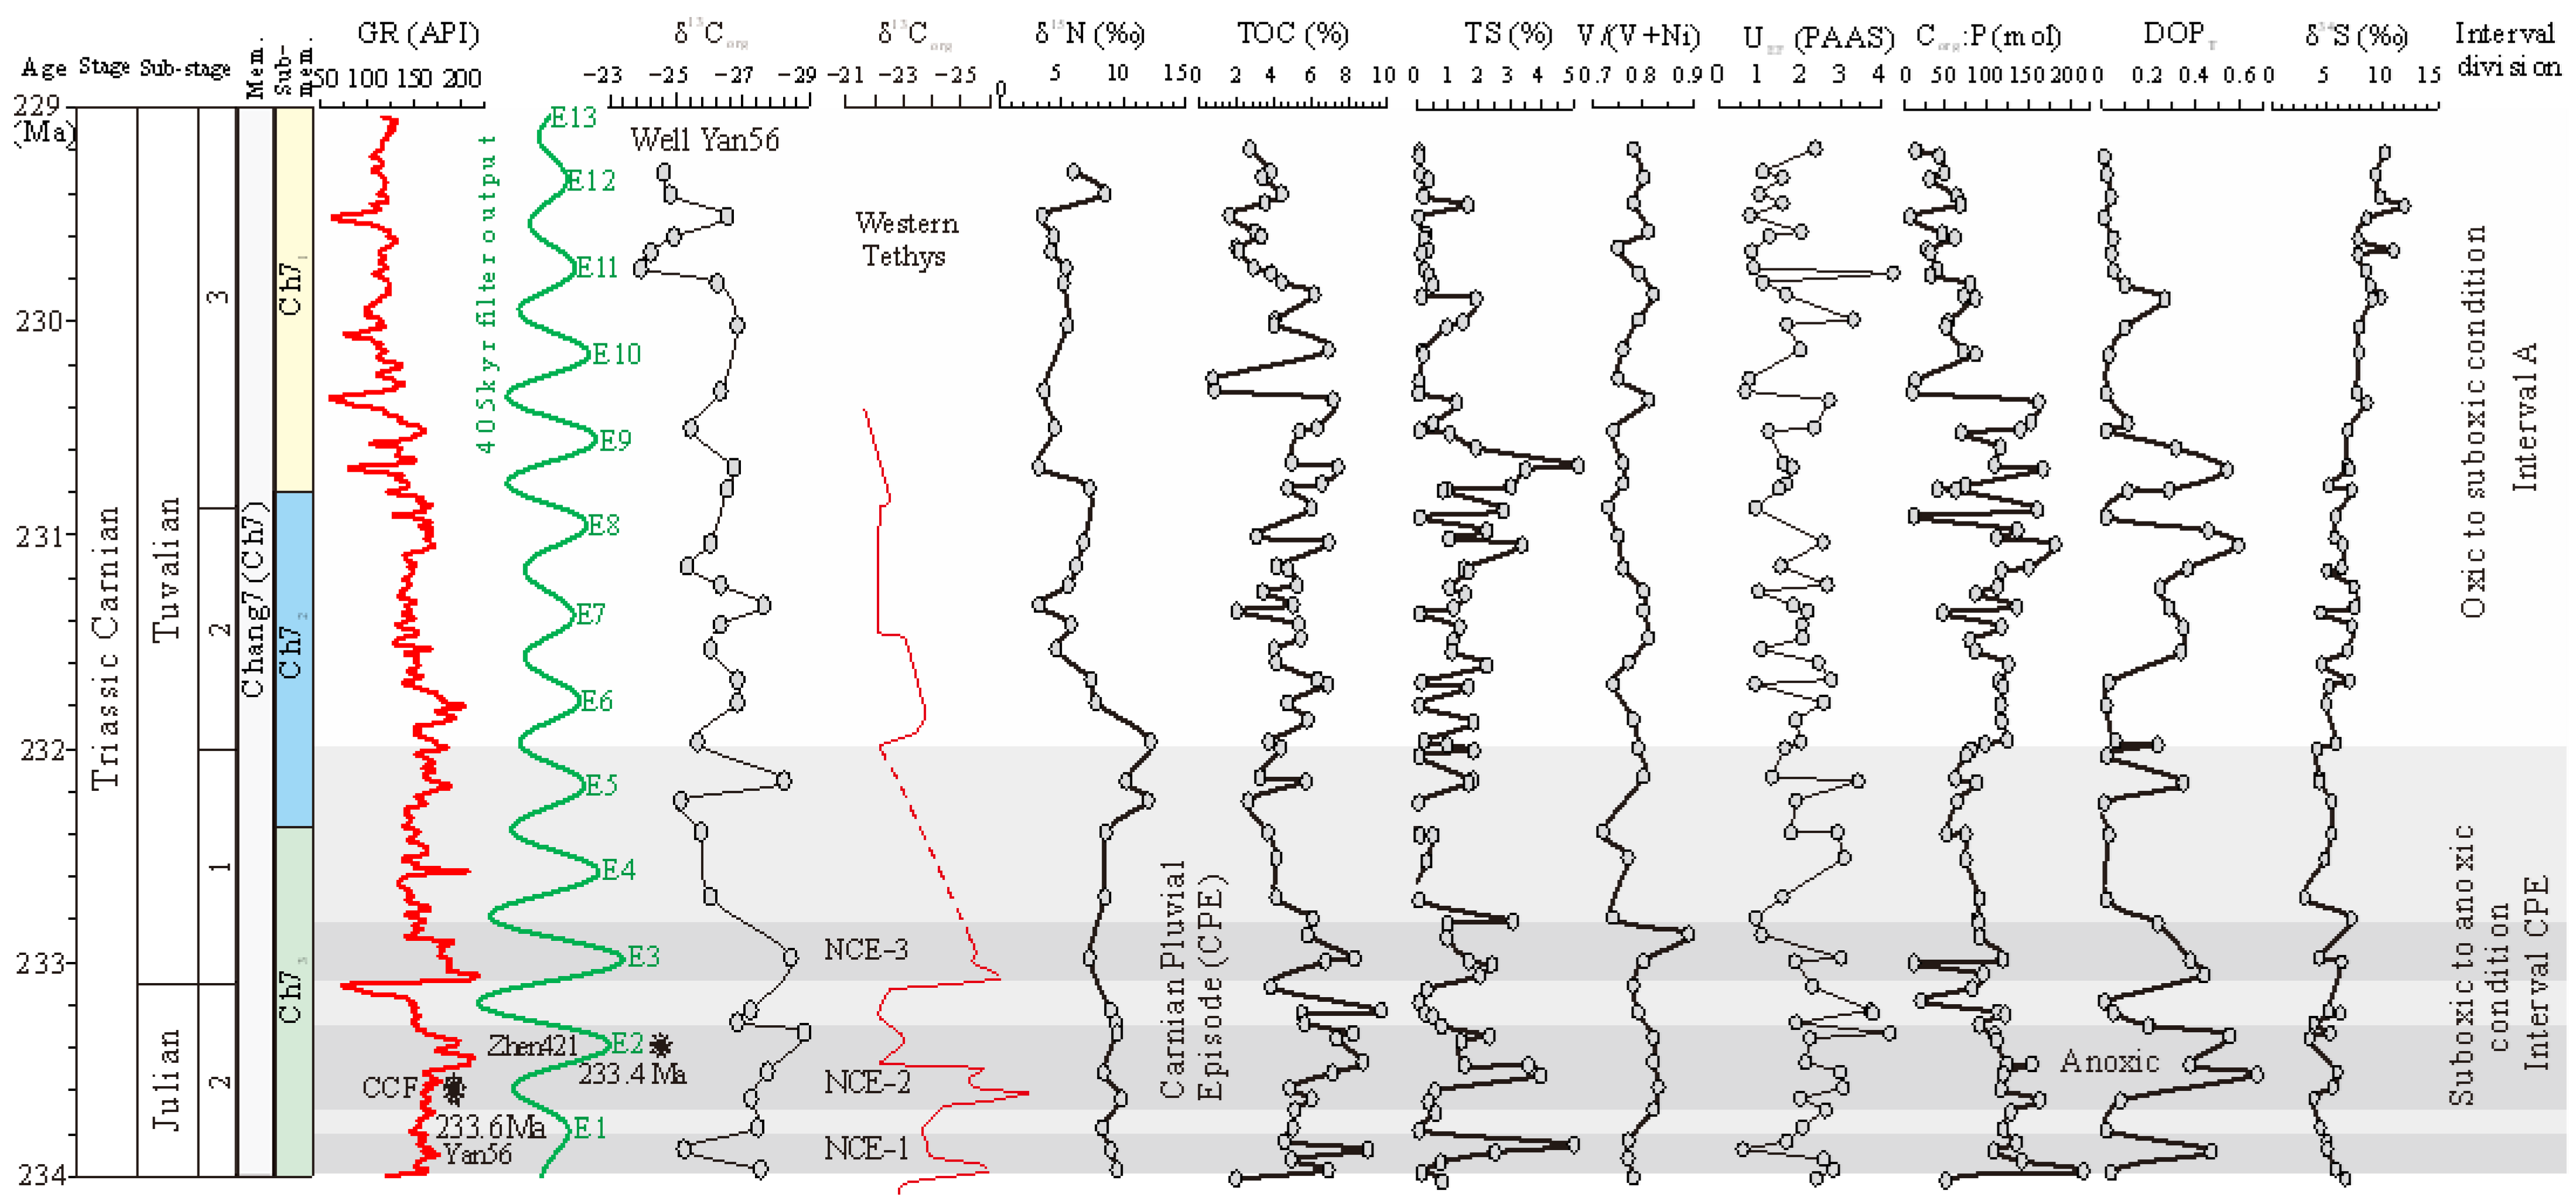 GR (API)
δ¹³C org
δ¹³C org
δ¹⁵N (‰)
TOC (%)
TS (%)
V/(V+Ni)
U EF (PAAS)
C org:P (mol)
DOP T
δ³⁴S (‰)
Interval
division
Age
Stage
Sub-stage
Mem.
Sub-
mem.
50 100 150 200
-23 -25 -27 -29
-21 -23 -25
0 5 10 15
0 2 4 6 8 10
0 1 2 3 4 5
0.7 0.8 0.9
0 1 2 3 4
0 50 100 150 200
0 0.2 0.4 0.6
0 5 10 15
229
(Ma)
230
231
232
233
234
Triassic Carnian
Tuvalian
Julian
3
2
1
2
Chang7 (Ch7)
Ch7 1
Ch7 2
Ch7 3
405kyr filter output
E13
E12
E11
E10
E9
E8
E7
E6
E5
E4
E3
E2
E1
Well Yan56
Western
Tethys
NCE-3
NCE-2
NCE-1
Zhen421
233.4 Ma
CCF
233.6 Ma
Yan56
Carnian Pluvial
Episode (CPE)
Anoxic
Oxic to suboxic condition
Interval A
Suboxic to anoxic
condition
Interval CPE